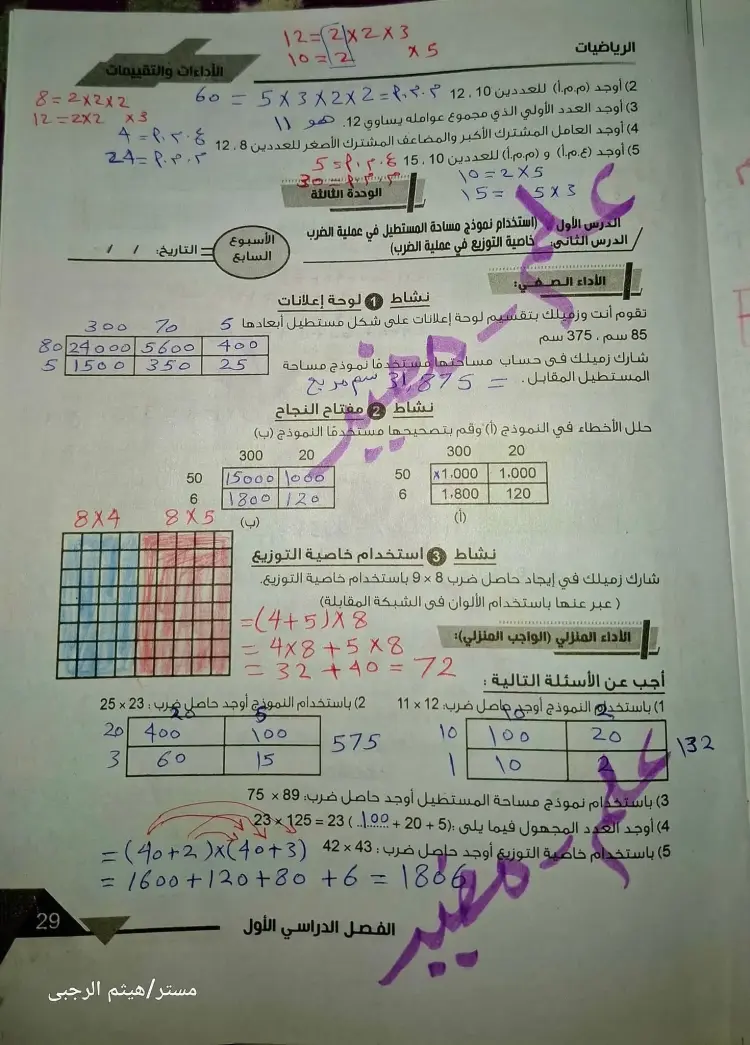 12 = 2 × 2 × 3
10 = 2 × 5
الرياضيات
الأداءات والتقييمات
2) أوجد (م.م.أ) للعددين 10 ، 12 م.م.أ = 2×2×3×5 = 60
8 = 2×2×2
12 = 2×2 ×3
3) أوجد العدد الأولي الذي مجموع عوامله يساوي 12. هو 11
4) أوجد العامل المشترك الأكبر والمضاعف المشترك الأصغر للعددين 8 ، 12
ع.م.أ = 4
م.م.أ = 24
5) أوجد (ع.م.أ) و (م.م.أ) للعددين 10 ، 15 ع.م.أ = 5
م.م.أ = 30
10 = 2×5
15 = 5×3
الوحدة الثالثة
الدرس الأول (استخدام نموذج مساحة المستطيل في عملية الضرب
الدرس الثاني: خاصية التوزيع في عملية الضرب)
الأسبوع السابع
التاريخ: / /
الأداء الصفي:
نشاط 1 لوحة إعلانات
تقوم أنت وزميلك بتقسيم لوحة إعلانات على شكل مستطيل أبعادها
85 سم ، 375 سم
شارك زميلك في حساب مساحتها مستخدمًا نموذج مساحة
المستطيل المقابل. = 31,875 سم مربع
300 70 5
80 24000 5600 400
5 1500 350 25
نشاط 2 مفتاح النجاح
حلل الأخطاء في النموذج (أ) وقم بتصحيحها مستخدمًا النموذج (ب)
300 20
50 ×1،000 1،000
6 1،800 120
(أ)
300 20
50 15000 1000
6 1800 120
(ب)
8×4 8×5
نشاط 3 استخدام خاصية التوزيع
شارك زميلك في إيجاد حاصل ضرب 8 × 9 باستخدام خاصية التوزيع.
( عبر عنها باستخدام الألوان في الشبكة المقابلة)
=(4+5)×8
= 4×8 + 5×8
= 32 + 40 = 72
الأداء المنزلي (الواجب المنزلي):
أجب عن الأسئلة التالية :
1) باستخدام النموذج أوجد حاصل ضرب: 12 × 11
10 2
10 100 20
1 10 2
132
2) باستخدام النموذج أوجد حاصل ضرب : 23 × 25
20 5
20 400 100
3 60 15
575
3) باستخدام نموذج مساحة المستطيل أوجد حاصل ضرب: 89 × 75
4) أوجد العدد المجهول فيما يلي :(5 + 20 + 100 ) 23 = 125 × 23
5) باستخدام خاصية التوزيع أوجد حاصل ضرب : 43 × 42
= (40+2)×(40+3)
= 1600+120+80 +6 = 1806
علم - مضير
علم - مضير
29
الفصل الدراسي الأول
مستر/هيثم الرجبى